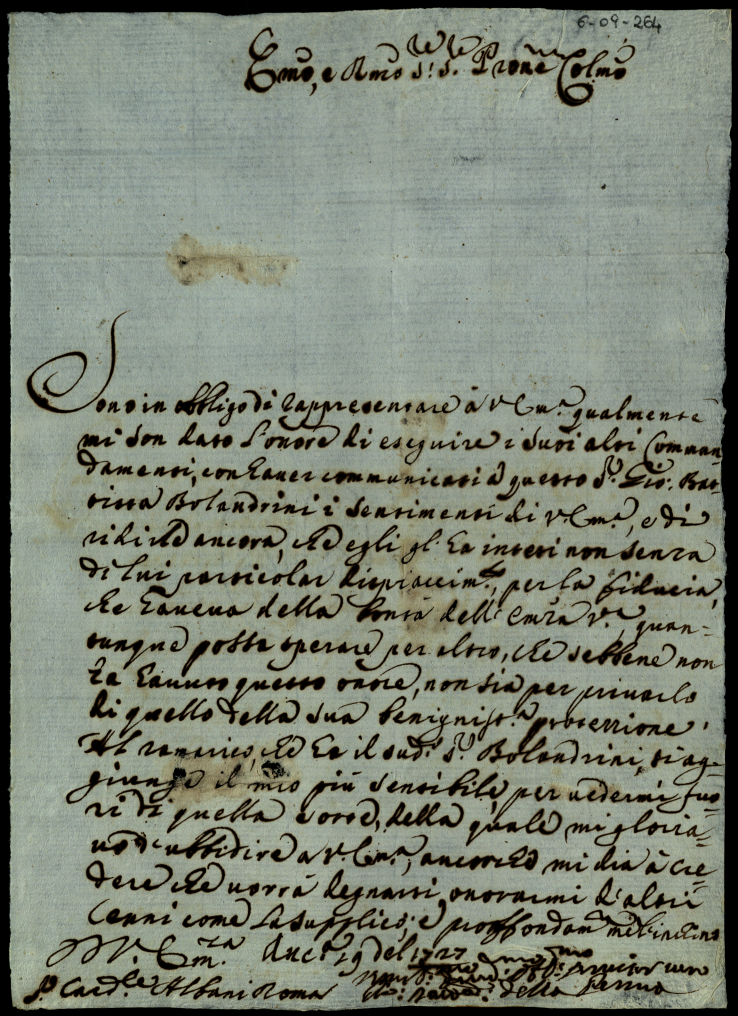 6-09-264
Emo, e Rmo Sr. Sr. Prone Colmo
Sono in obbligo di rappresentare à V. Em.a qualmente
mi son dato l'onore di eseguire i suoi alti Comman-
damenti, con hauer communicati à questo Sr. Gio: Bat-
tista Bolandrini i sentimenti di V. Em.a, e di
ridirle ancora, che egli gl' ha intesi non senza
di lui particolar dispiaccim.to, per la fiducia,
che haueua della bontà dell' Em.za V.a, quan-
tunque possa sperare per altro, che sebbene non
ha hauuto questo onore, non sia per priuarlo
di quello della sua benigniss.a protezzione.
Al ramarico che ha il sud.o Sr. Bolandrini, si ag-
giunge il mio più sensibile per uedermi fuo-
ri di quella sorte, della quale mi gloria-
uo d'ubbidire a V. Em.a, ancorche mi dia à cre-
dere che uorrà degnarsi onorarmi d'altri
Cenni come La supplico; e proffondam.te m'inchino
D V. Em.za Anc.a 19 del 1727
Sr. Card.le Albani Roma della Penna